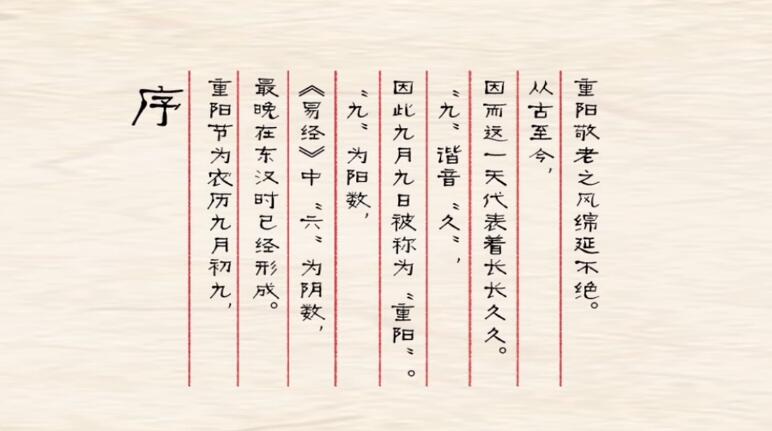 序
重阳节为农历九月初九，
最晚在东汉时已经形成。
《易经》中“六”为阴数，
“九”为阳数，
因此九月九日被称为“重阳”。
“九”谐音“久”，
因而这一天代表着长长久久。
从古至今，
重阳敬老之风绵延不绝。